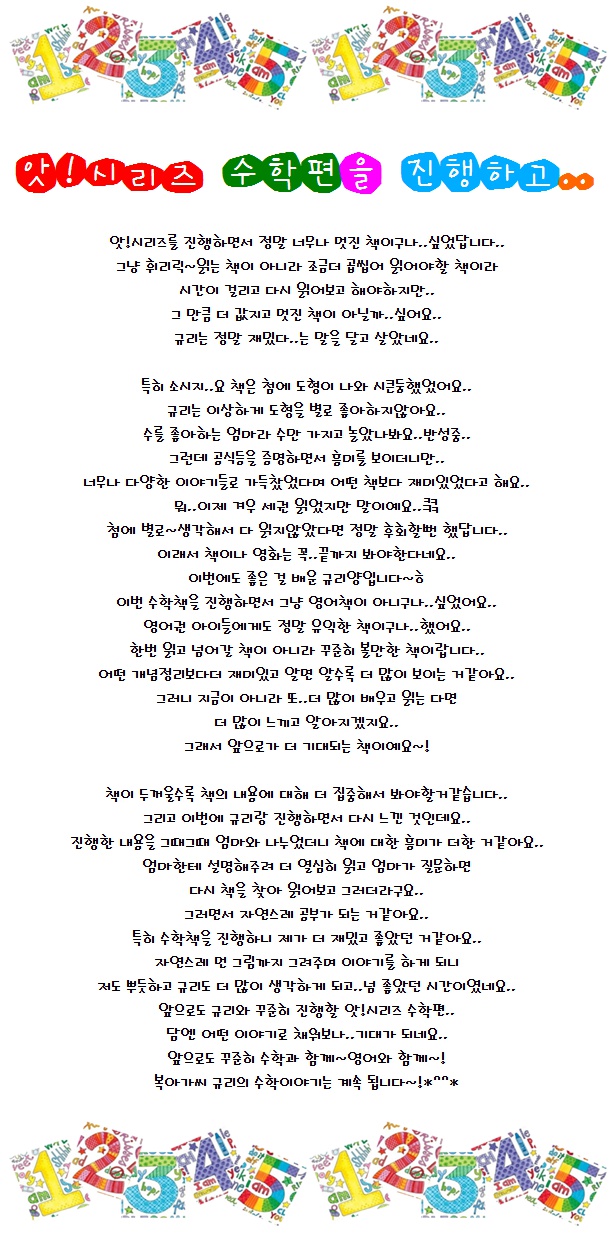 1 2 3 4 5 1 2 3 4 5
앗!시리즈 수학편을 진행하고..
앗!시리즈를 진행하면서 정말 너무나 멋진 책이구나..싶었답니다..
그냥 휘리릭~읽는 책이 아니라 조금더 곱씹어 읽어야할 책이라
시간이 걸리고 다시 읽어보고 해야하지만..
그 만큼 더 값지고 멋진 책이 아닐까..싶어요..
규리는 정말 재밌다..는 말을 달고 살았네요..
특히 소시지..요 책은 첨에 도형이 나와 시큰둥했었어요..
규리는 이상하게 도형을 별로 좋아하지않아요..
수를 좋아하는 엄마라 수만 가지고 놀았나봐요..반성중..
그런데 공식들을 증명하면서 흥미를 보이더니만..
너무나 다양한 이야기들로 가득찼었다며 어떤 책보다 재미있었다고 해요..
뭐..이제 겨우 세권 읽었지만 말이예요..ㅋㅋ
첨에 별로~생각해서 다 읽지않았다면 정말 후회할뻔 했답니다..
이래서 책이나 영화는 꼭..끝까지 봐야한다네요..
이번에도 좋은 걸 배운 규리양입니다~ㅎ
이번 수학책을 진행하면서 그냥 영어책이 아니구나..싶었어요..
영어권 아이들에게도 정말 유익한 책이구나..했어요..
한번 읽고 넘어갈 책이 아니라 꾸준히 볼만한 책이랍니다..
어떤 개념정리보다더 재미있고 알면 알수록 더 많이 보이는 거같아요..
그러니 지금이 아니라 또..더 많이 배우고 읽는 다면
더 많이 느끼고 알아지겠지요..
그래서 앞으로가 더 기대되는 책이예요~!
책이 두꺼울수록 책의 내용에 대해 더 집중해서 봐야할거같습니다..
그리고 이번에 규리랑 진행하면서 다시 느낀 것인데요..
진행한 내용을 그때그때 엄마와 나누었더니 책에 대한 흥미가 더한 거같아요..
엄마한테 설명해주려 더 열심히 읽고 엄마가 질문하면
다시 책을 찾아 읽어보고 그러더라구요..
그러면서 자연스레 공부가 되는 거같아요..
특히 수학책을 진행하니 제가 더 재밌고 좋았던 거같아요..
자연스레 먼 그림까지 그려주며 이야기를 하게 되니
저도 뿌듯하고 규리도 더 많이 생각하게 되고..넘 좋았던 시간이였네요..
앞으로도 규리와 꾸준히 진행할 앗!시리즈 수학편..
담엔 어떤 이야기로 채워보나..기대가 되네요..
앞으로도 꾸준히 수학과 함께~영어와 함께~!
복아가씨 규리의 수학이야기는 계속 됩니다~!*^^*
1 2 3 4 5 1 2 3 4 5